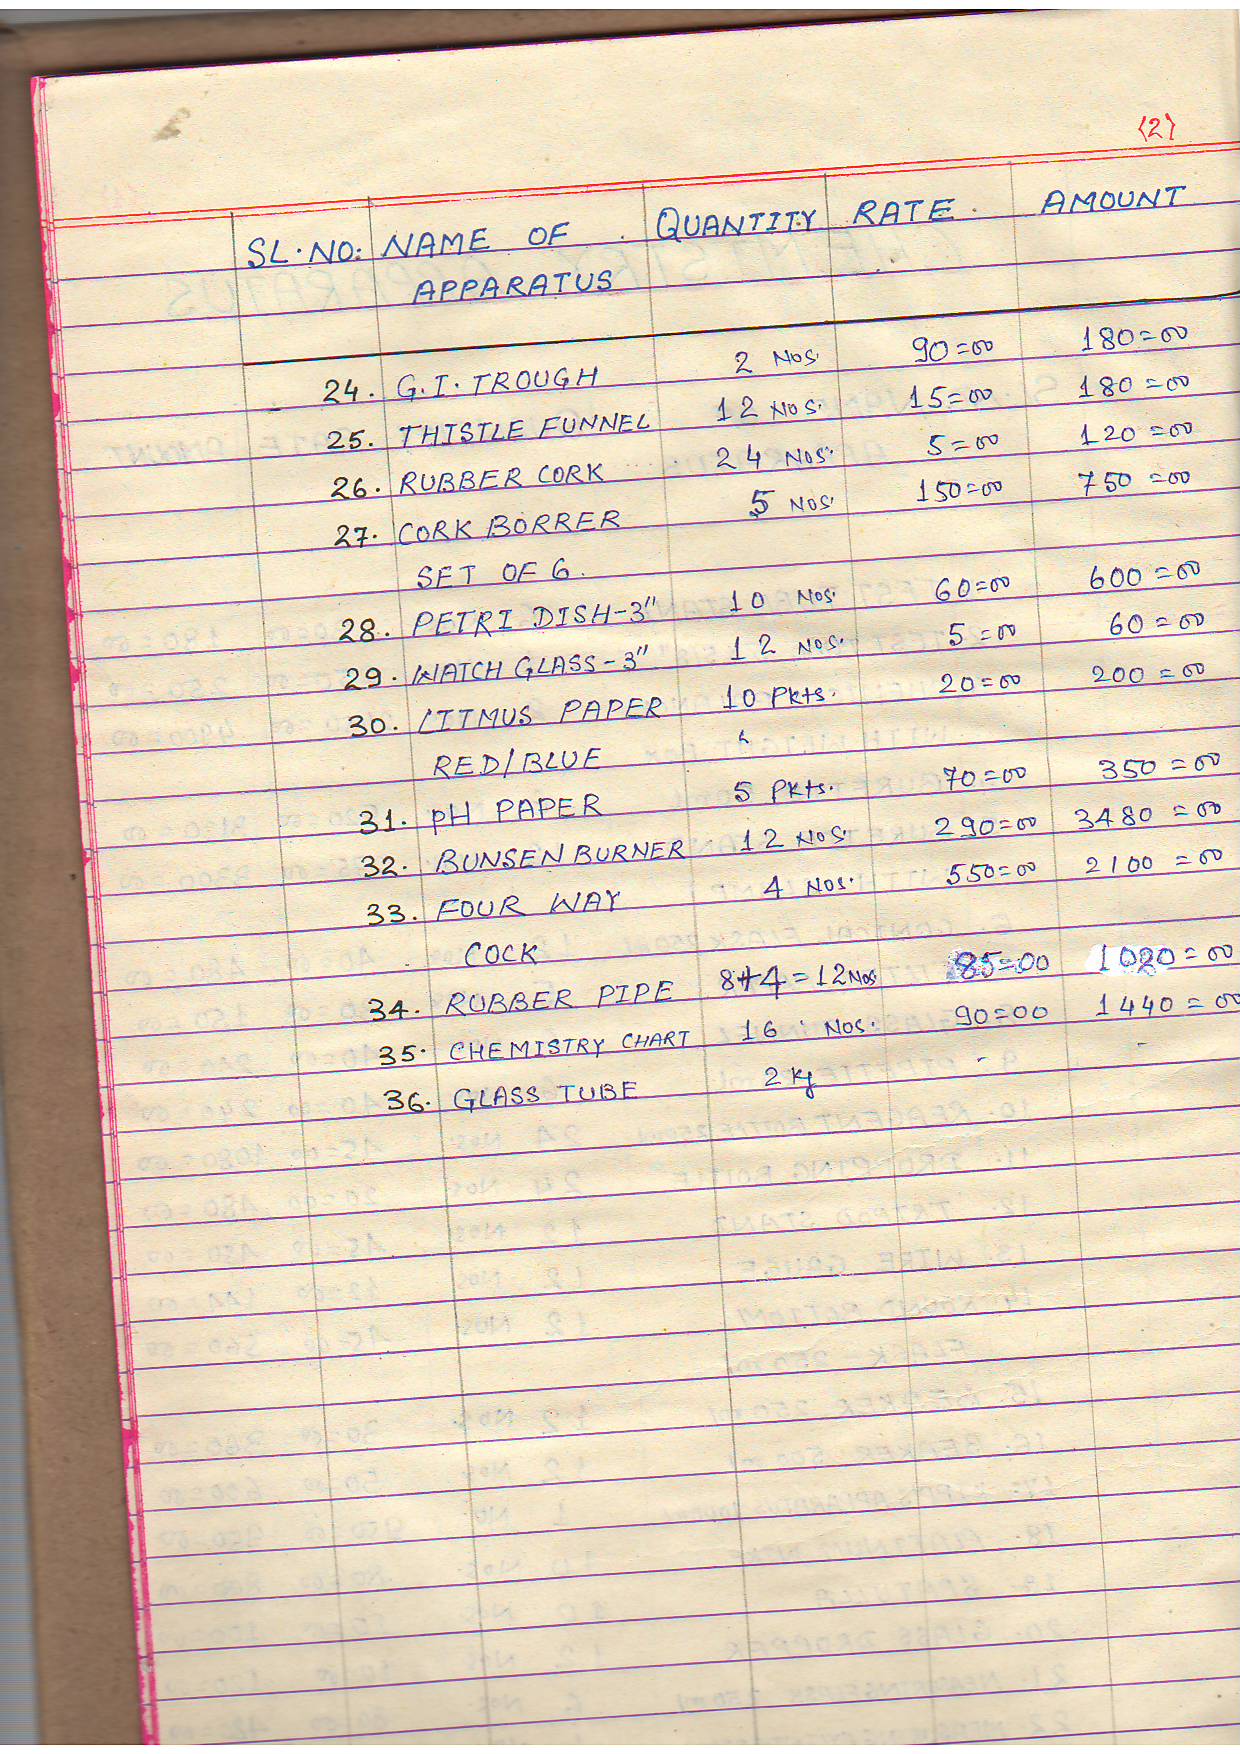 (2)
SL.NO: NAME OF QUANTITY RATE. AMOUNT
APPARATUS
24. G.I. TROUGH 2 Nos. 90=00 180=00
25. THISTLE FUNNEL 12 NOS. 15=00 180=00
26. RUBBER CORK 24 NOS. 5=00 120=00
27. CORK BORRER 5 NOS. 150=00 750=00
SET OF 6.
28. PETRI DISH-3" 10 Nos. 60=00 600=00
29. WATCH GLASS-3" 12 NOS. 5=00 60=00
30. LITMUS PAPER 10 Pkts. 20=00 200=00
RED/BLUE
31. pH PAPER 5 Pkts. 70=00 350=00
32. BUNSEN BURNER 12 NOS. 290=00 3480=00
33. FOUR WAY 4 NOS. 550=00 2100=00
COCK
34. RUBBER PIPE 8+4=12Nos. 85=00 1020=00
35. CHEMISTRY CHART 16 NOS. 90=00 1440=00
36. GLASS TUBE 2 Kg - -